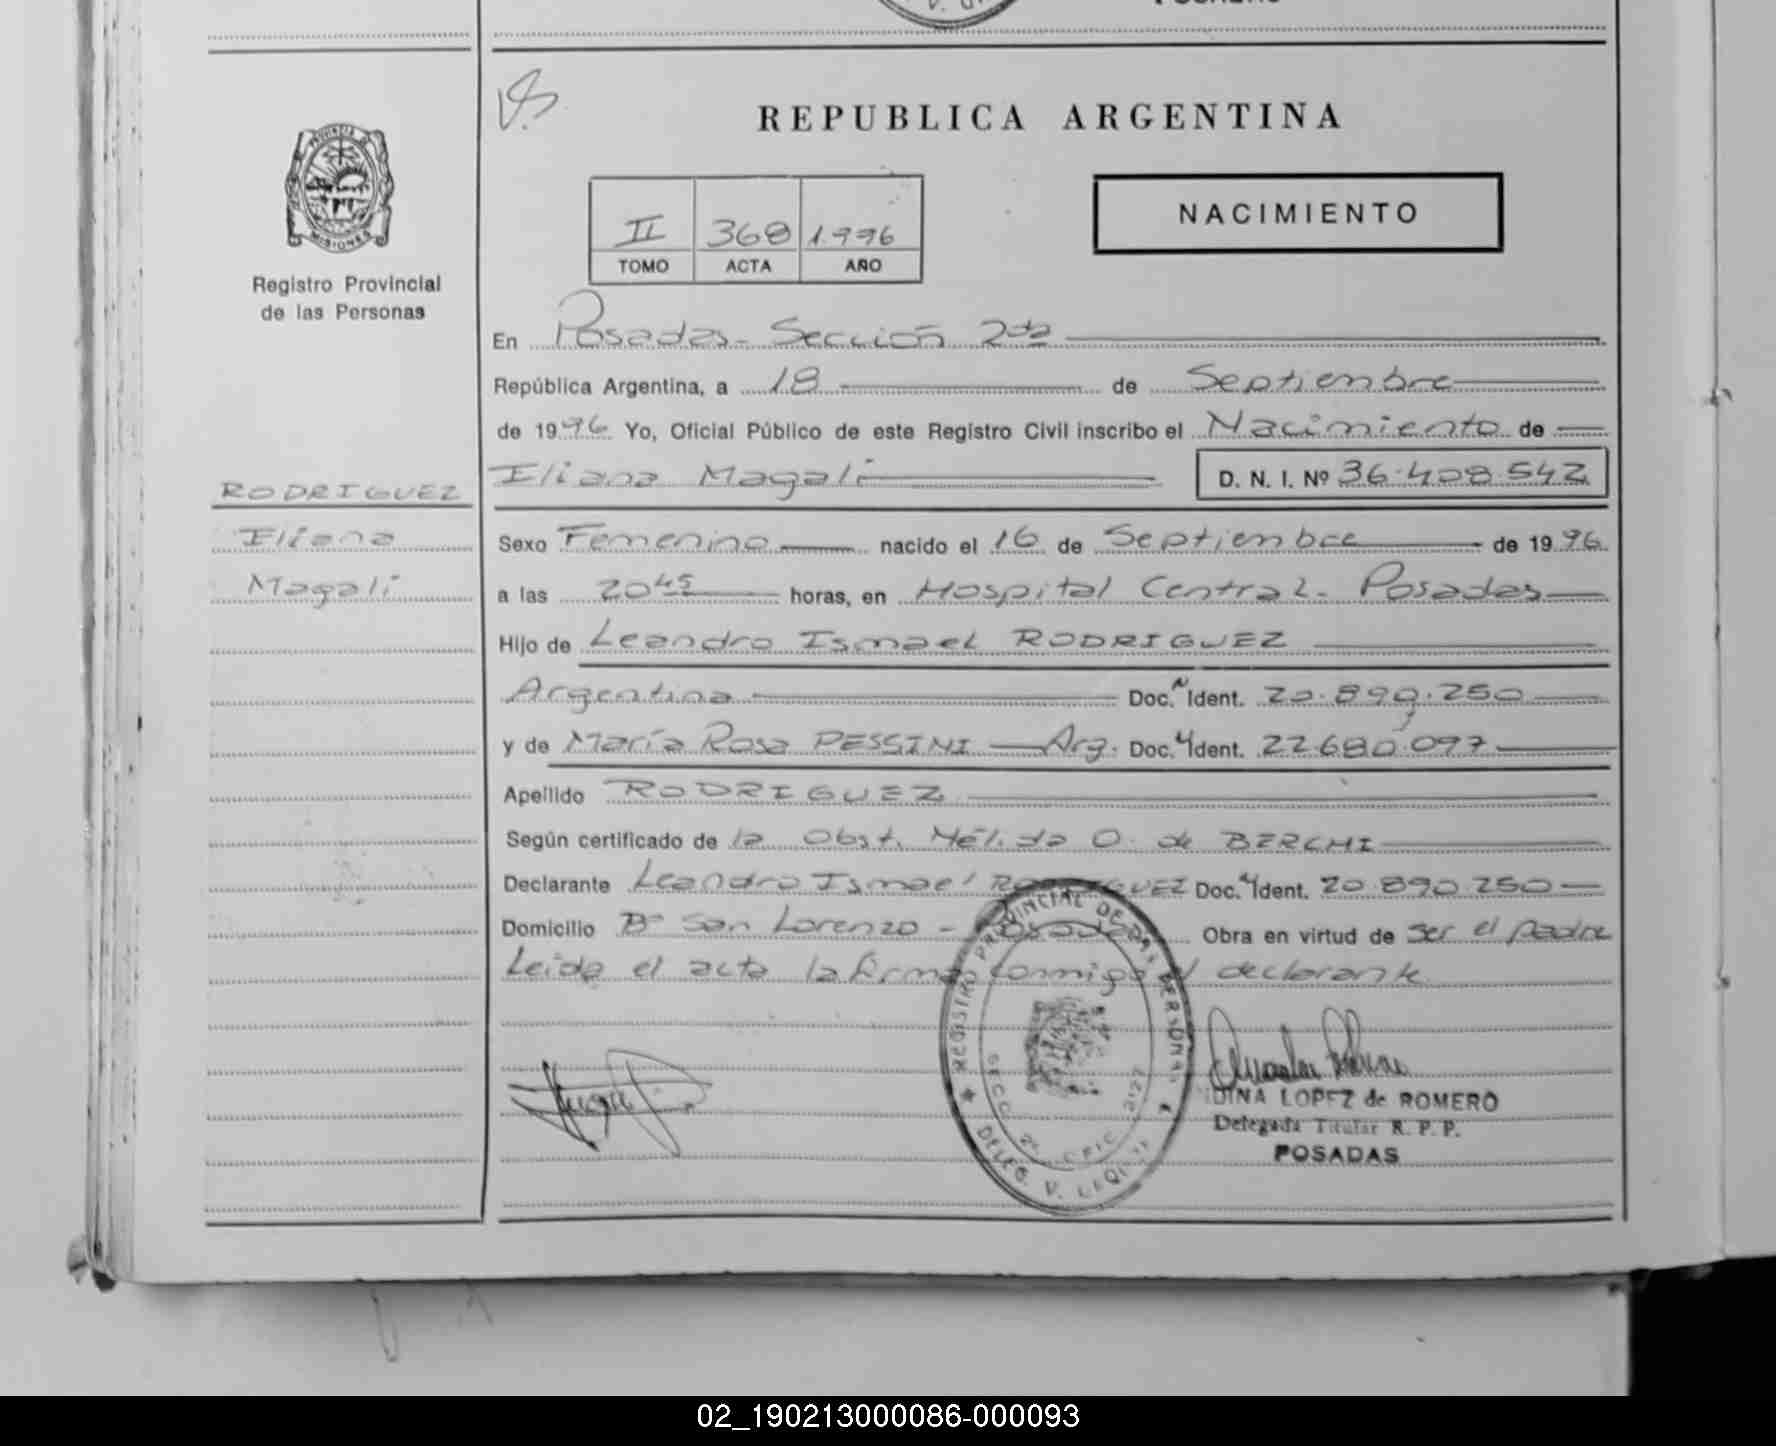 REPUBLICA ARGENTINA
NACIMIENTO
II 368 1.996
TOMO ACTA AÑO
PROVINCIA DE MISIONES
Registro Provincial
de las Personas
En Posadas - Sección 2da
República Argentina, a 18 de Septiembre
de 1996 Yo, Oficial Público de este Registro Civil inscribo el Nacimiento de
RODRIGUEZ
Iliana Magali D. N. I. Nº 36.408.542
Iliana
Magali
Sexo Femenino nacido el 16 de Septiembre de 1996
a las 20 45 horas, en Hospital Central - Posadas
Hijo de Leandro Ismael RODRIGUEZ
Argentina Doc. Ident. 20.890.250
y de María Rosa PESSINI Arg. Doc. Ident. 22.680.097
Apellido RODRIGUEZ
Según certificado de la Obst. Nélida O. de BERCHI
Declarante Leandro Ismael RODRIGUEZ Doc. Ident. 20.890.250
Domicilio Bº San Lorenzo - Posadas Obra en virtud de ser el padre
Leida el acta la firma conmigo el declarante
REGISTRO PROVINCIAL DE LAS PERSONAS
DINA LOPEZ de ROMERO
Delegada Titular R. P. P.
POSADAS
02_190213000086-000093